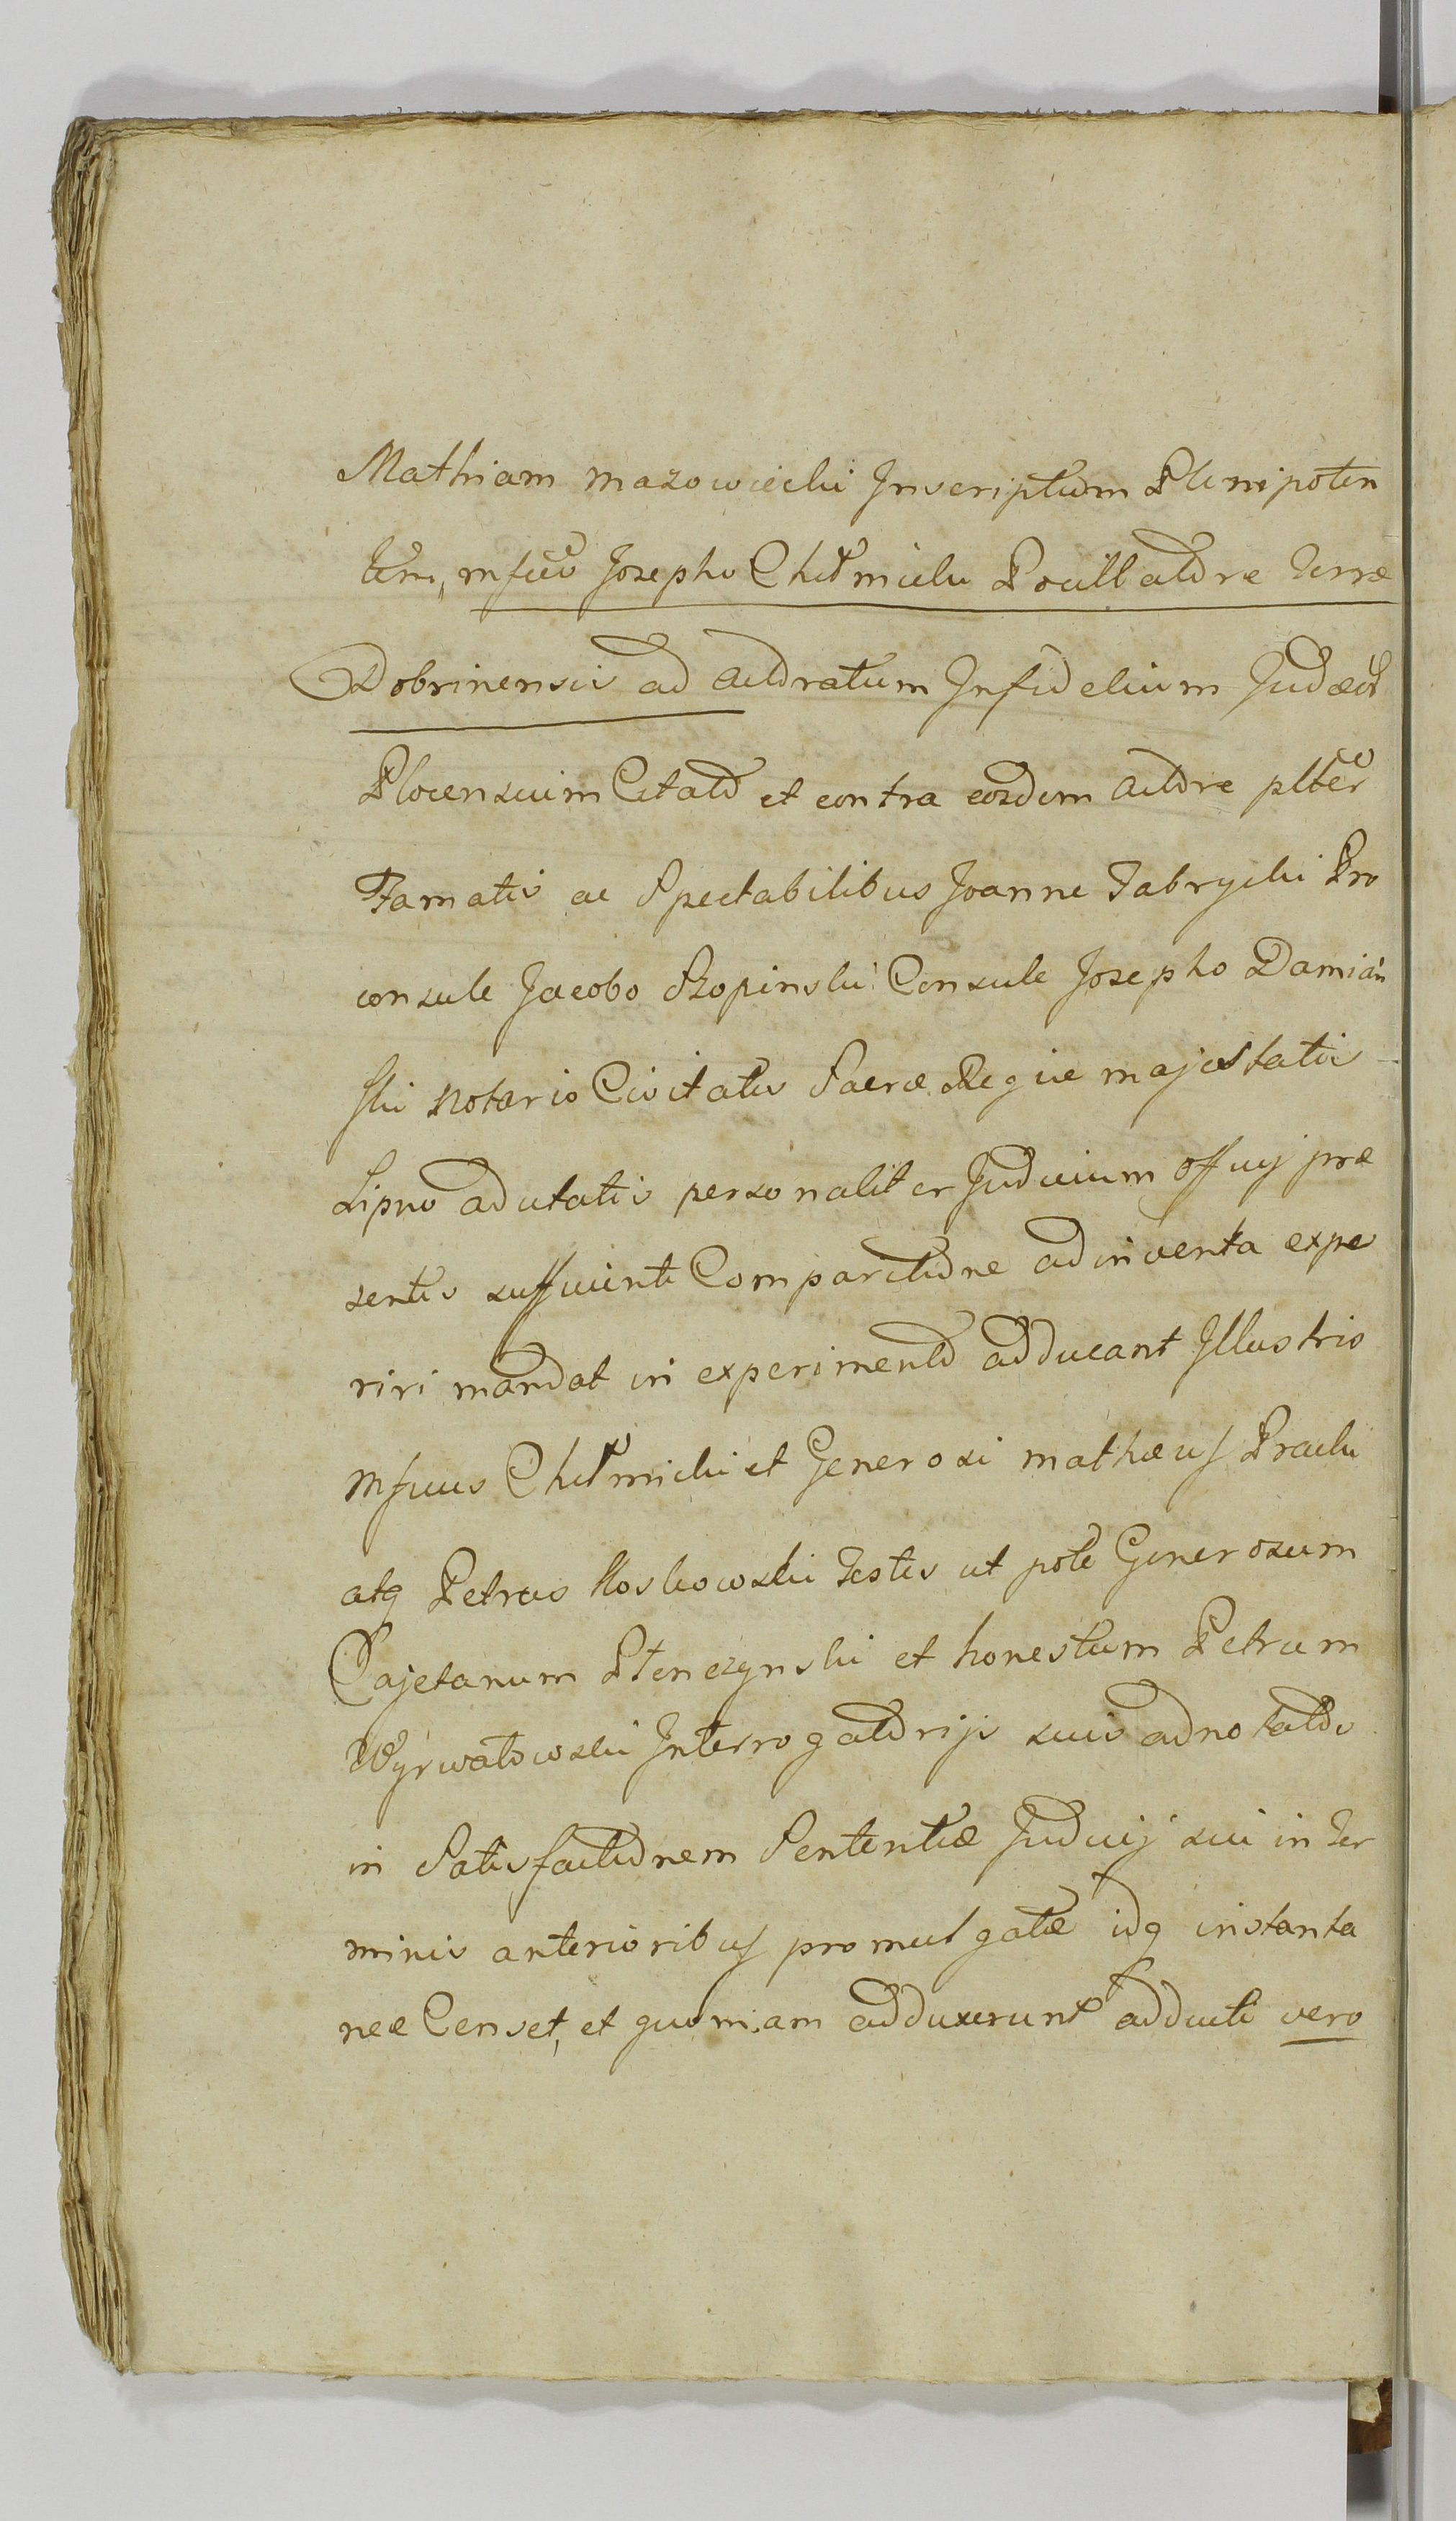 Mathiam Mazowiecki Inscriptum Plenipoten
tem, mfco Josepho Chełmicki Pocillatore Terræ
Dobrinensis ad actoratum Infidelium Judæor
Plocensium Citato et contra eosdem actore plter
Famatis ac Spectabilibus Joanne Fabrycki Pro
consule Jacobo Szopinski Consule Josepho Damiań
ski Notario Civitatis Sacræ Regiæ majestatis
Lipno ad citatis personaliter Judicium officij præ
sentis sufficienti Comparitione adinventa expe
riri mandat in experimento adducant Illustris
Mficus Chełmicki et Generosi mathæus Pracki
atq Petrus Koskowski Testes ut pote Generosum
Cajetanum Ptenczynski et honestum Petrum
Wyrwatowski Interrogatorijs suis adnotatos
in Satisfactionem Sententiæ Judicij sui in Ter
minis anterioribus promulgatæ idq instanta
nee Censet, et quoniam adduxerunt adducti vero